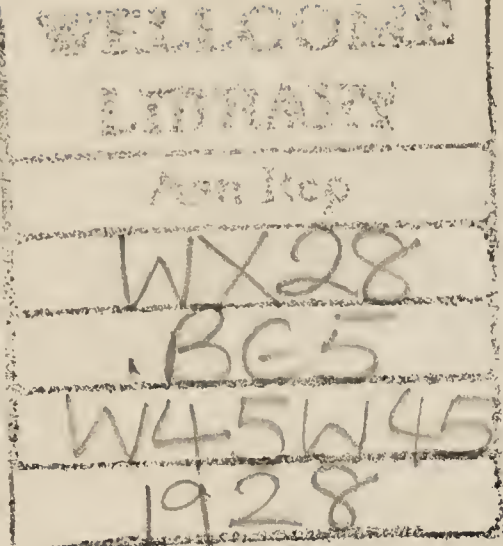 WELLCOME
LIBRARY
Ann Rep
WX28
.BE5
W45W45
1928